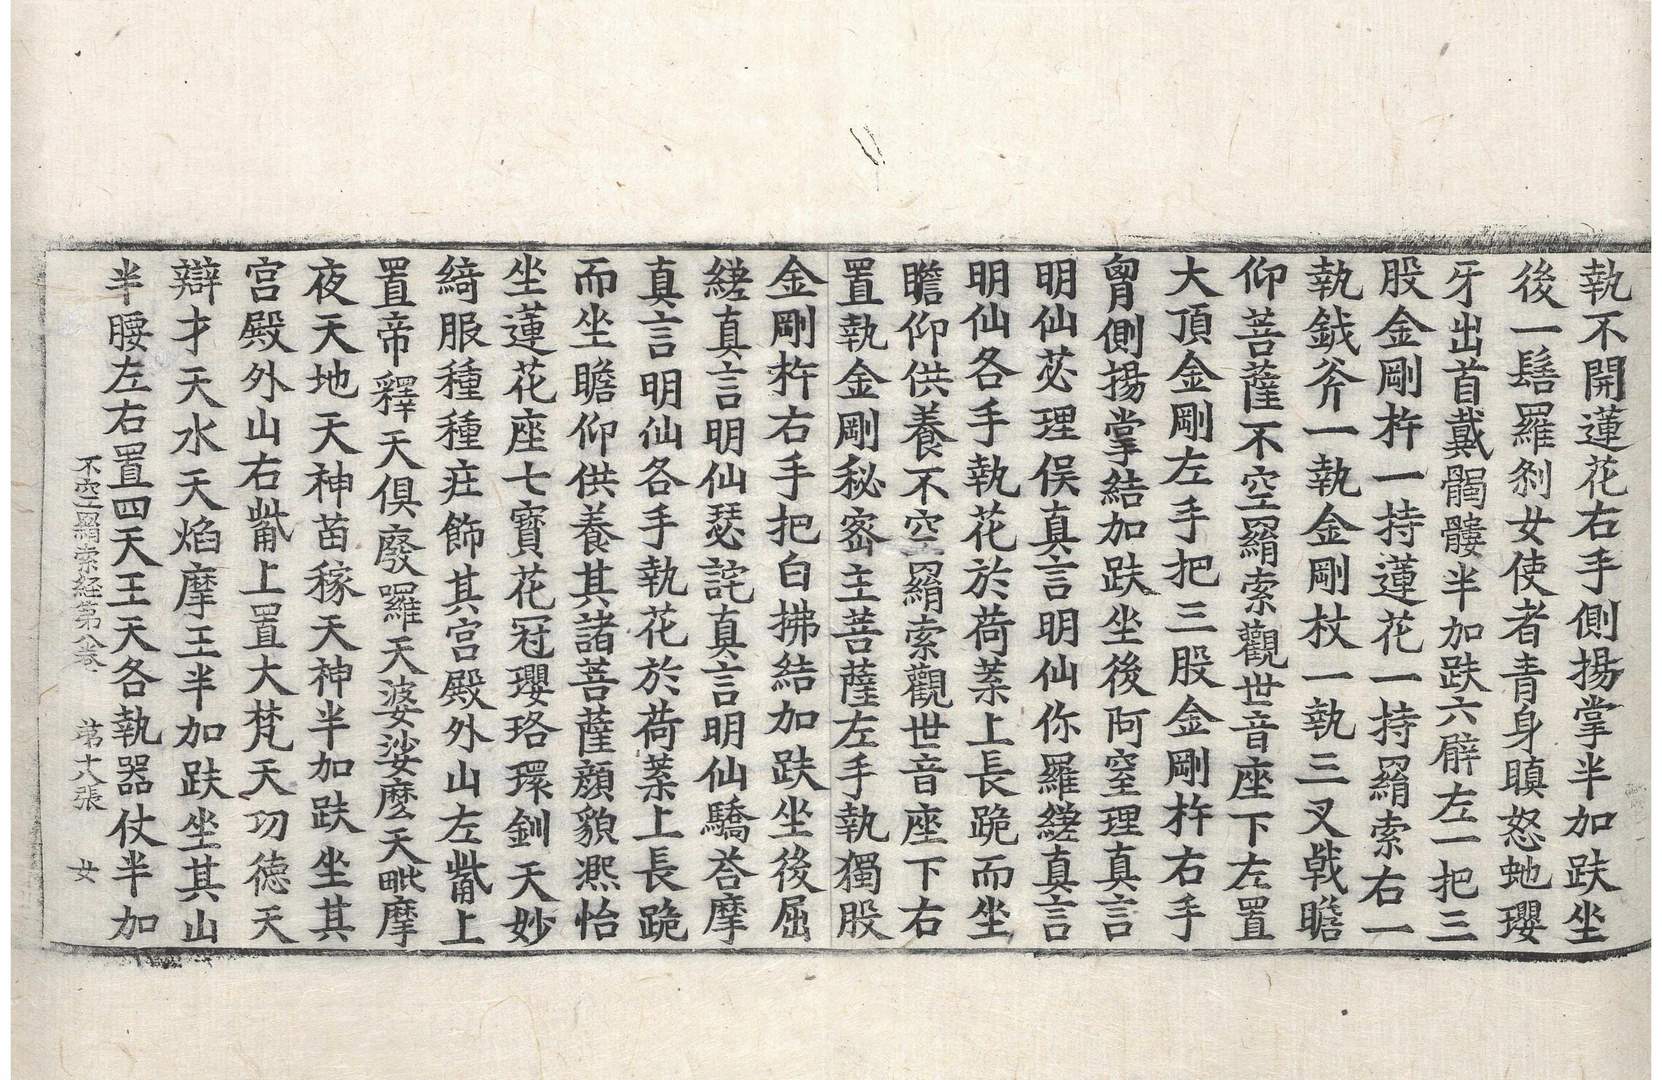 執不開蓮花右手側揚掌半加趺坐
後一髻羅剎女使者青身瞋怒虵瓔
牙出首戴髑髏半加趺六臂左一把三
股金剛杵一持蓮花一持羂索右一
執鉞斧一執金剛杖一執三叉戟瞻
仰菩薩不空羂索觀世音座下左置
大頂金剛左手把三股金剛杵右手
𦚾側揚掌結加趺坐後阿窒理真言
明仙苾理俁真言明仙你羅縒真言
明仙各手執花於荷葉上長跪而坐
瞻仰供養不空羂索觀世音座下右
置執金剛秘密主菩薩左手執獨股
金剛杵右手把白拂結加趺坐後屈
縒真言明仙瑟詫真言明仙驕荅摩
真言明仙各手執花於荷葉上長跪
而坐瞻仰供養其諸菩薩顏貌熈怡
坐蓮花座七寶花冠瓔珞環釧天妙
綺服種種㽵飾其宮殿外山左觜上
置帝釋天俱廢囉天婆娑麼天毗摩
夜天地天神苗稼天神半加趺坐其
宮殿外山右觜上置大梵天功德天
辯才天水天焰摩王半加趺坐其山
半腰左右置四天王天各執器仗半加
不空羂索経第八卷 第十八張 女